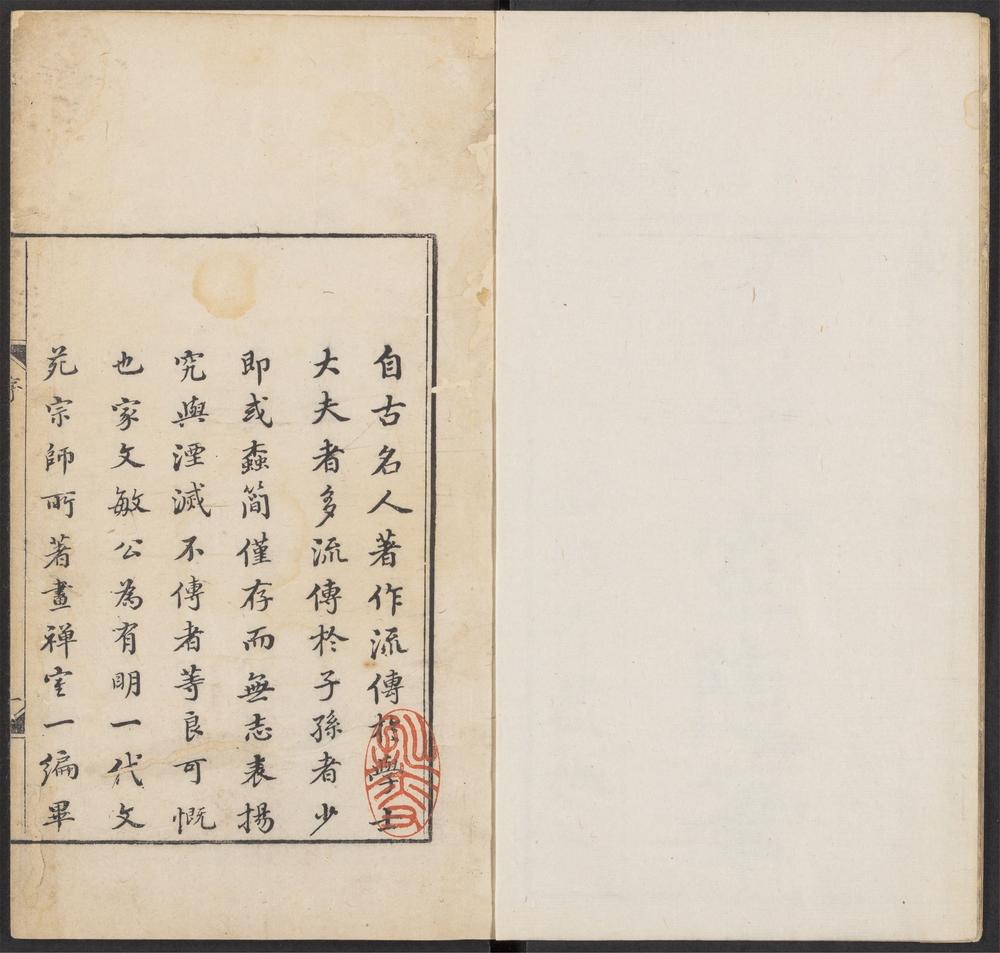 自古名人著作流傳於學士
大夫者多流傳於子孫者少
即或蠧簡僅存而無志表揚
究與湮滅不傳者等良可慨
也家文敏公為有明一代文
苑宗師所著畫禪室一編畢
序
一